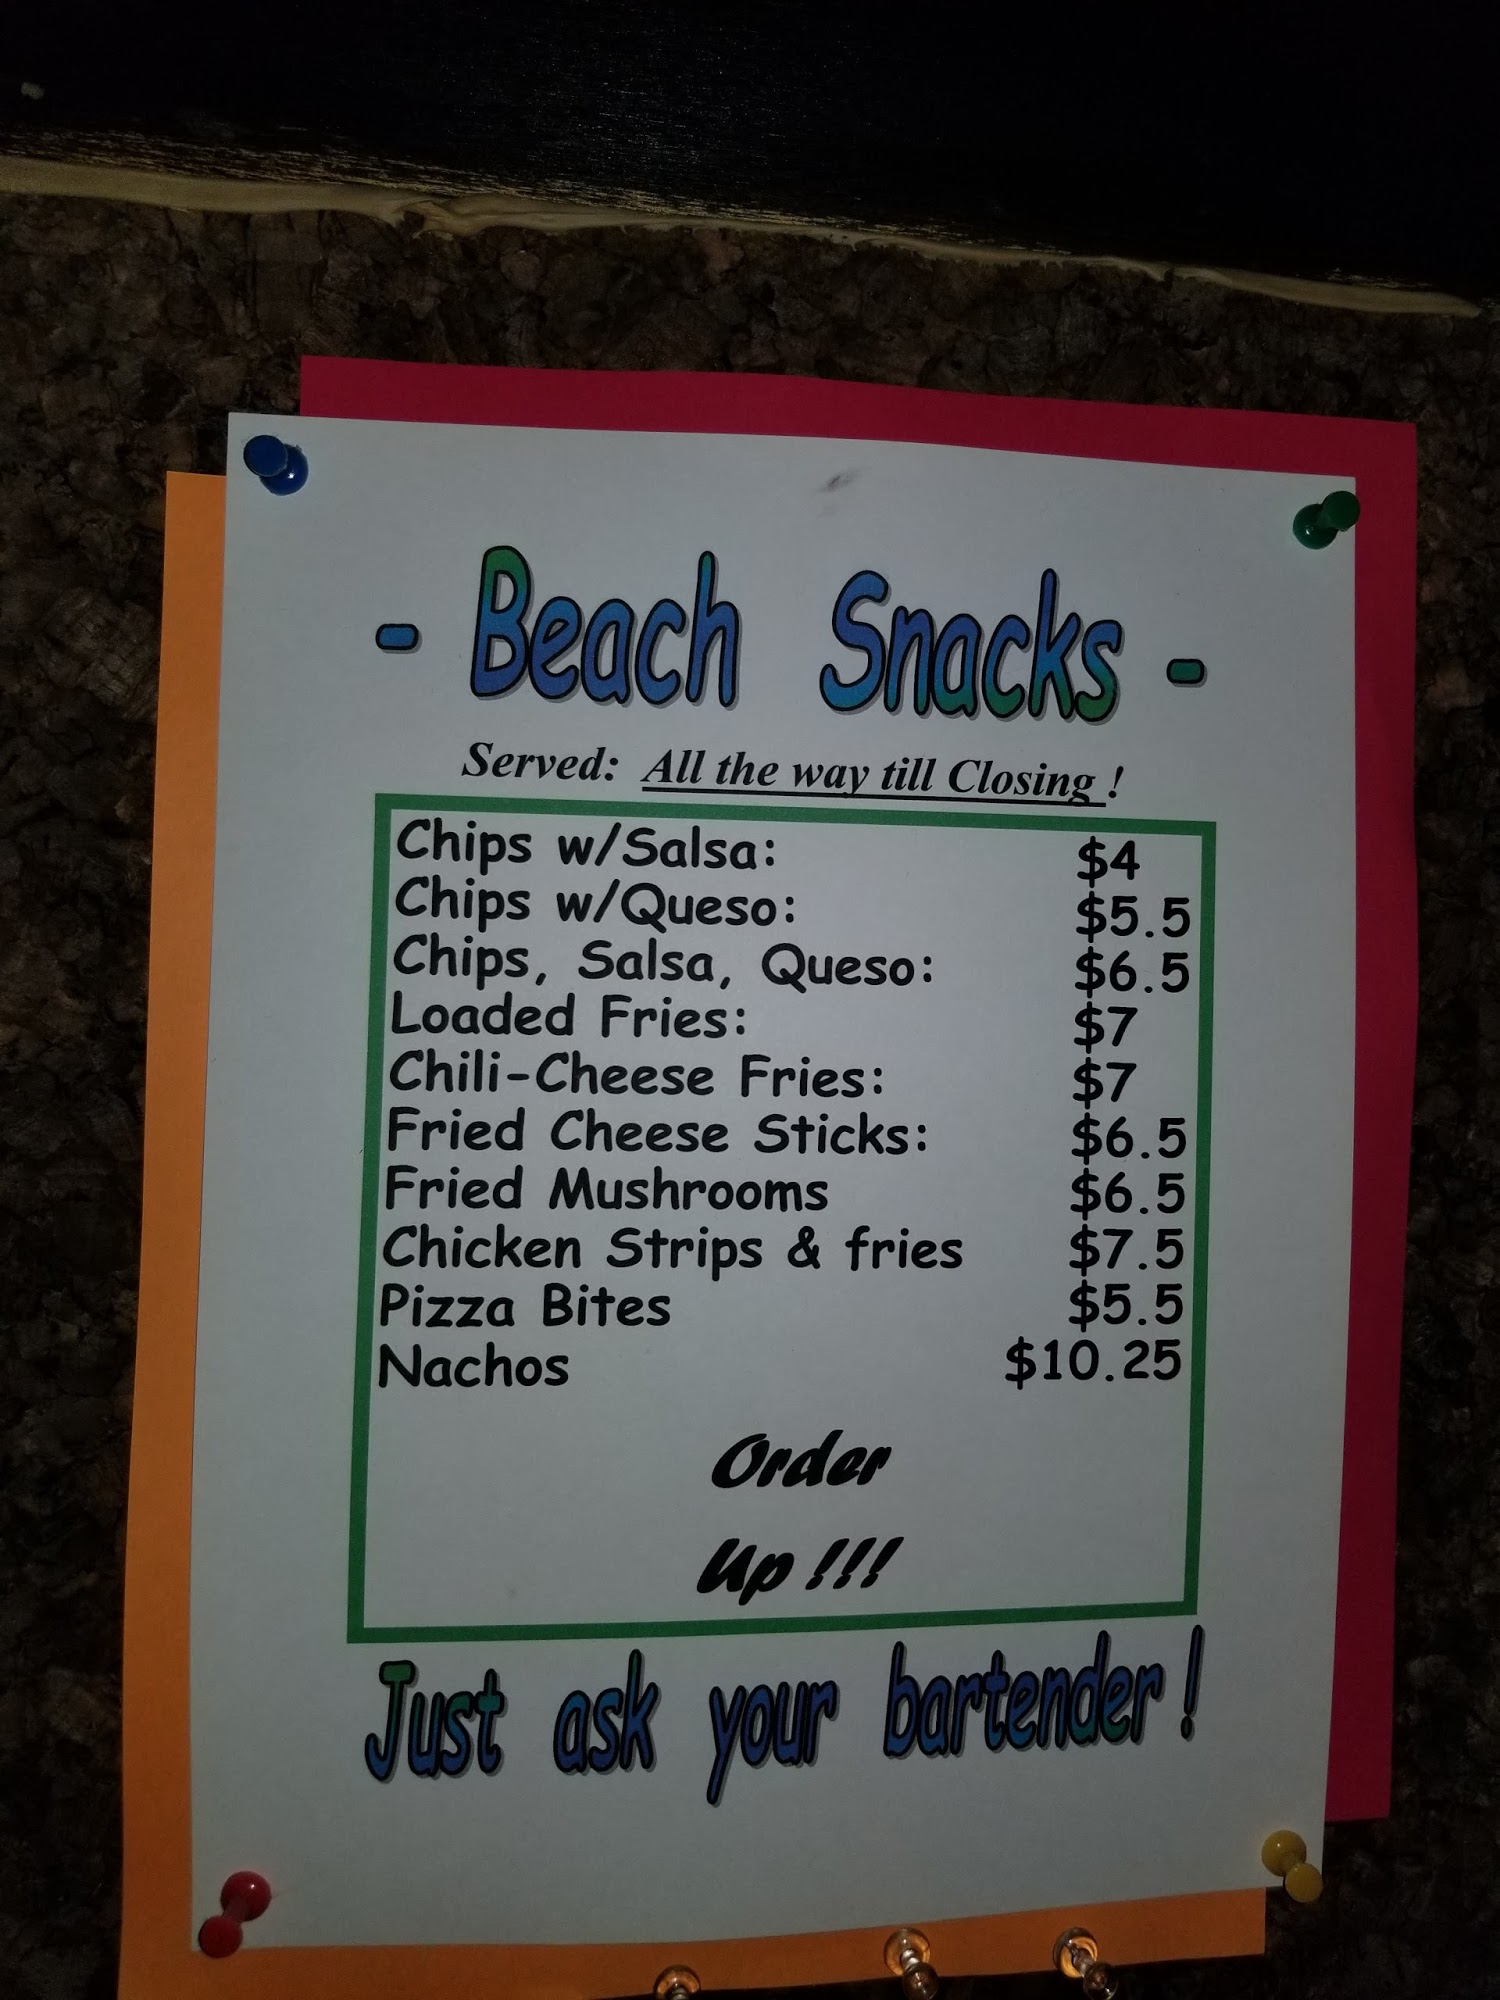 - Beach Snacks -
Served: All the way till Closing !
Chips w/Salsa: $4
Chips w/Queso: $5.5
Chips, Salsa, Queso: $6.5
Loaded Fries: $7
Chili-Cheese Fries: $7
Fried Cheese Sticks: $6.5
Fried Mushrooms $6.5
Chicken Strips & fries $7.5
Pizza Bites $5.5
Nachos $10.25
Order
Up !!!
Just ask your bartender !